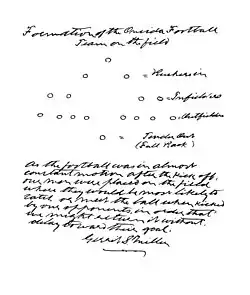 Formation of the Oneida Football
Team on the field
= Rushers in
= Infielders
= Outfielders
= Tender Out
(Full Back)
As the football was in almost
constant motion after the kick off.
our men were placed on the field
where they would be most likely to
catch or meet the ball when kicked
by our opponents, in order that
we might return it without
delay toward their goal.
Gerrit S. Miller